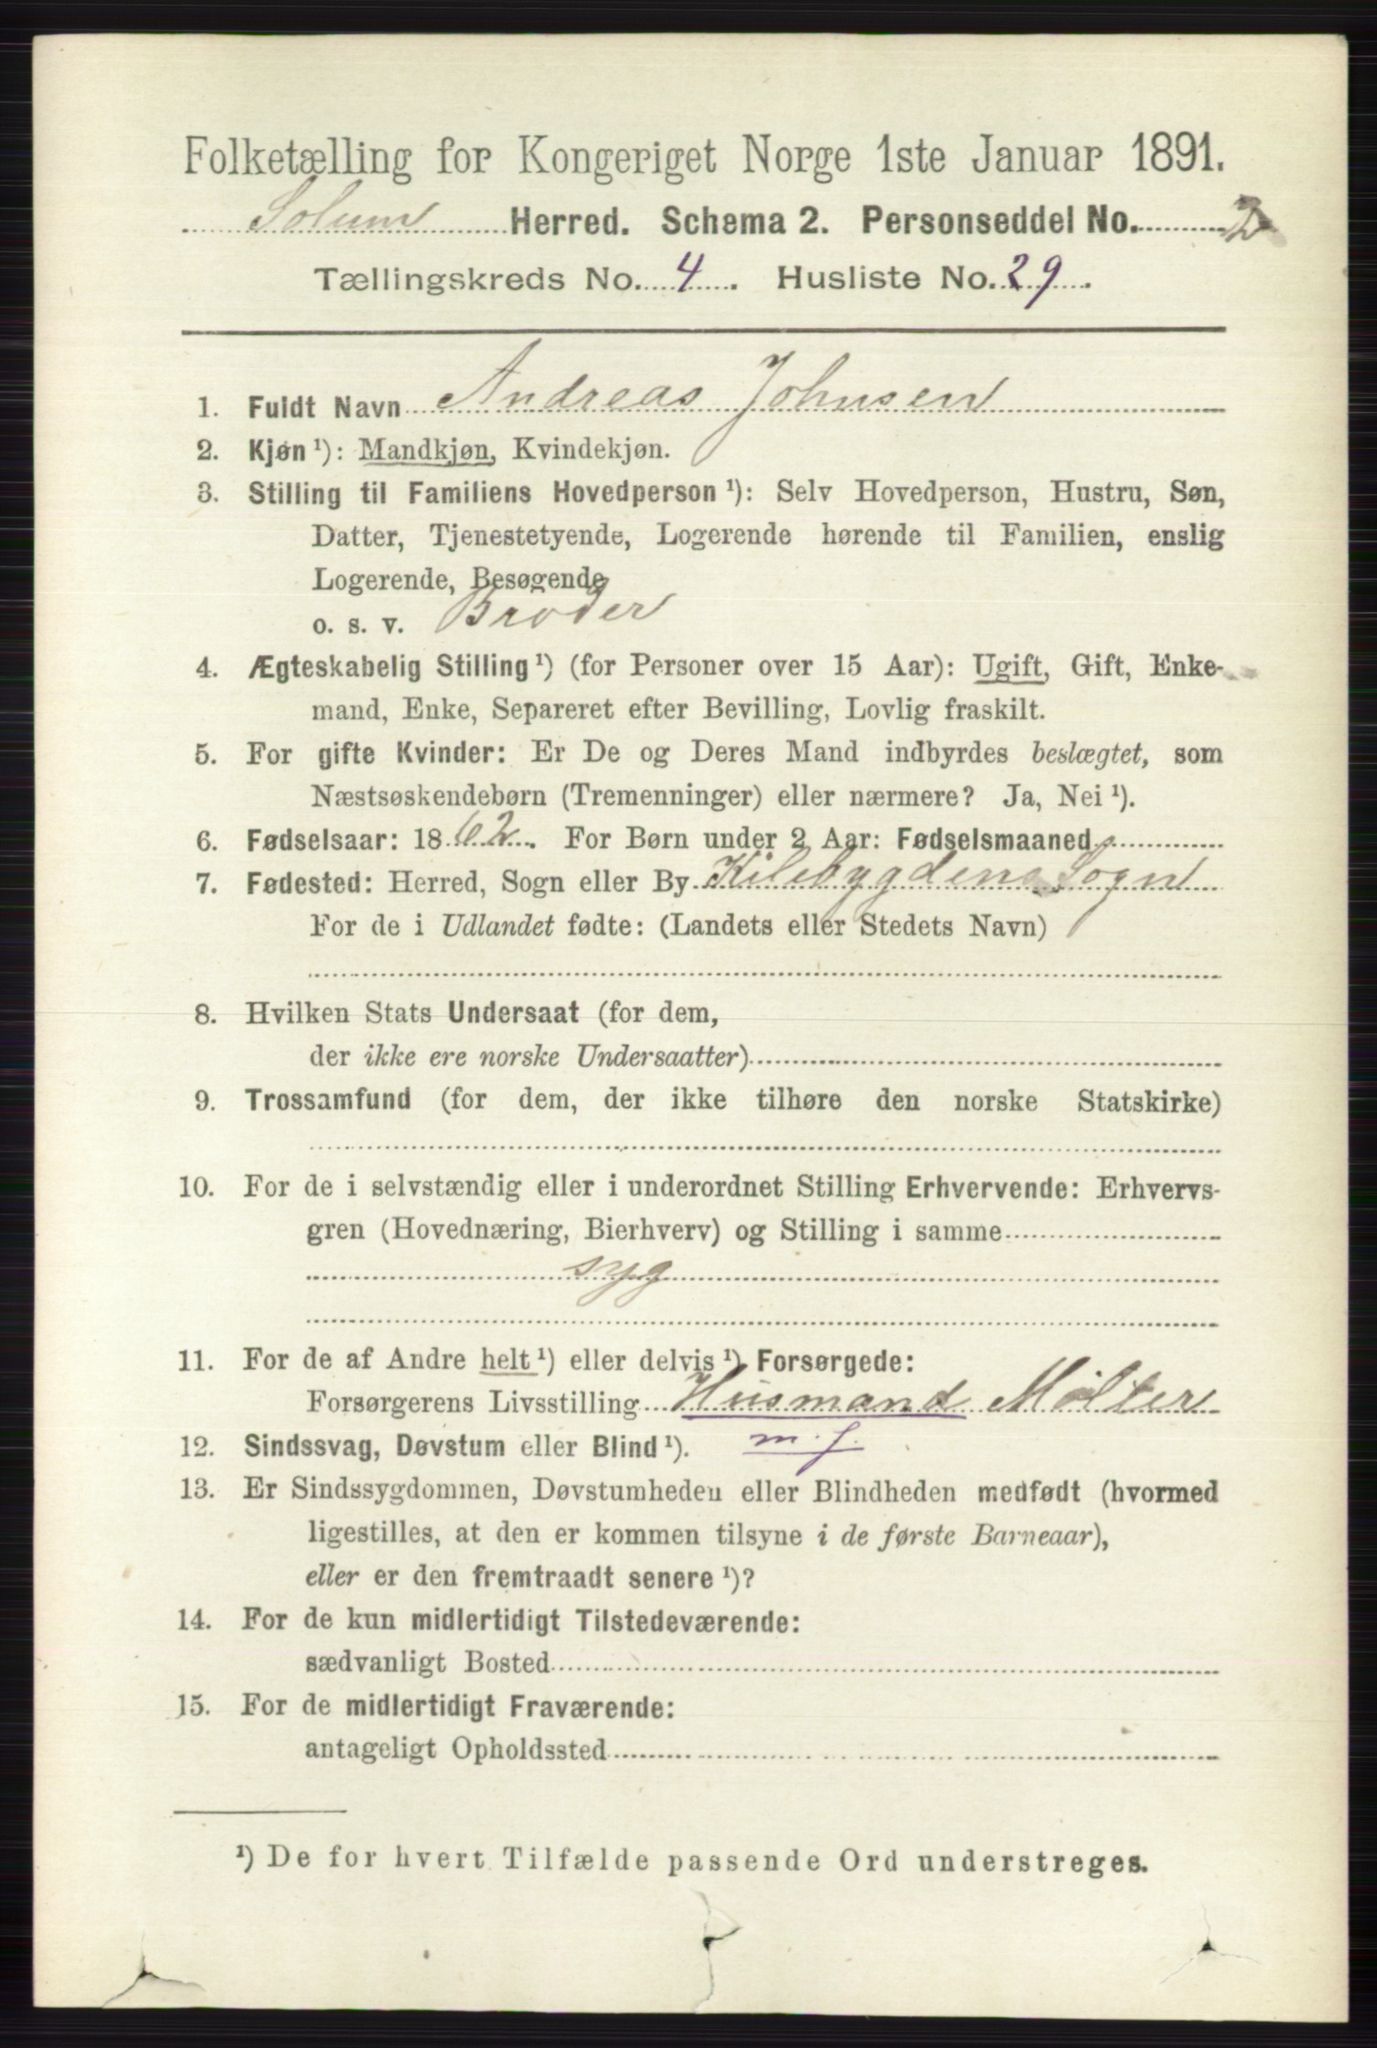 Folketælling for Kongeriget Norge 1ste Januar 1891.
Solum Herred. Schema 2. Personseddel No. 2
Tællingskreds No. 4. Husliste No. 29.
1. Fuldt Navn Andreas Johnsen
2. Kjøn ¹): Mandkjøn, Kvindekjøn.
3. Stilling til Familiens Hovedperson ¹): Selv Hovedperson, Hustru, Søn,
Datter, Tjenestetyende, Logerende hørende til Familien, enslig
Logerende, Besøgende
o. s. v. Broder
4. Ægteskabelig Stilling ¹) (for Personer over 15 Aar): Ugift, Gift, Enke-
mand, Enke, Separeret efter Bevilling, Lovlig fraskilt.
5. For gifte Kvinder: Er De og Deres Mand indbyrdes beslægtet, som
Næstsøskendebørn (Tremenninger) eller nærmere? Ja, Nei ¹).
6. Fødselsaar: 1862. For Børn under 2 Aar: Fødselsmaaned
7. Fødested: Herred, Sogn eller By Kilebygdens Sogn
For de i Udlandet fødte: (Landets eller Stedets Navn)
8. Hvilken Stats Undersaat (for dem,
der ikke ere norske Undersaatter)
9. Trossamfund (for dem, der ikke tilhøre den norske Statskirke)
10. For de i selvstændig eller i underordnet Stilling Erhvervende: Erhvervs-
gren (Hovednæring, Bierhverv) og Stilling i samme
syg
11. For de af Andre helt ¹) eller delvis ¹) Forsørgede:
Forsørgerens Livsstilling Husmand Mølter
12. Sindssvag, Døvstum eller Blind ¹). m. j.
13. Er Sindssygdommen, Døvstumheden eller Blindheden medfødt (hvormed
ligestilles, at den er kommen tilsyne i de første Barneaar),
eller er den fremtraadt senere ¹)?
14. For de kun midlertidigt Tilstedeværende:
sædvanligt Bosted
15. For de midlertidigt Fraværende:
antageligt Opholdssted
¹) De for hvert Tilfælde passende Ord understreges.